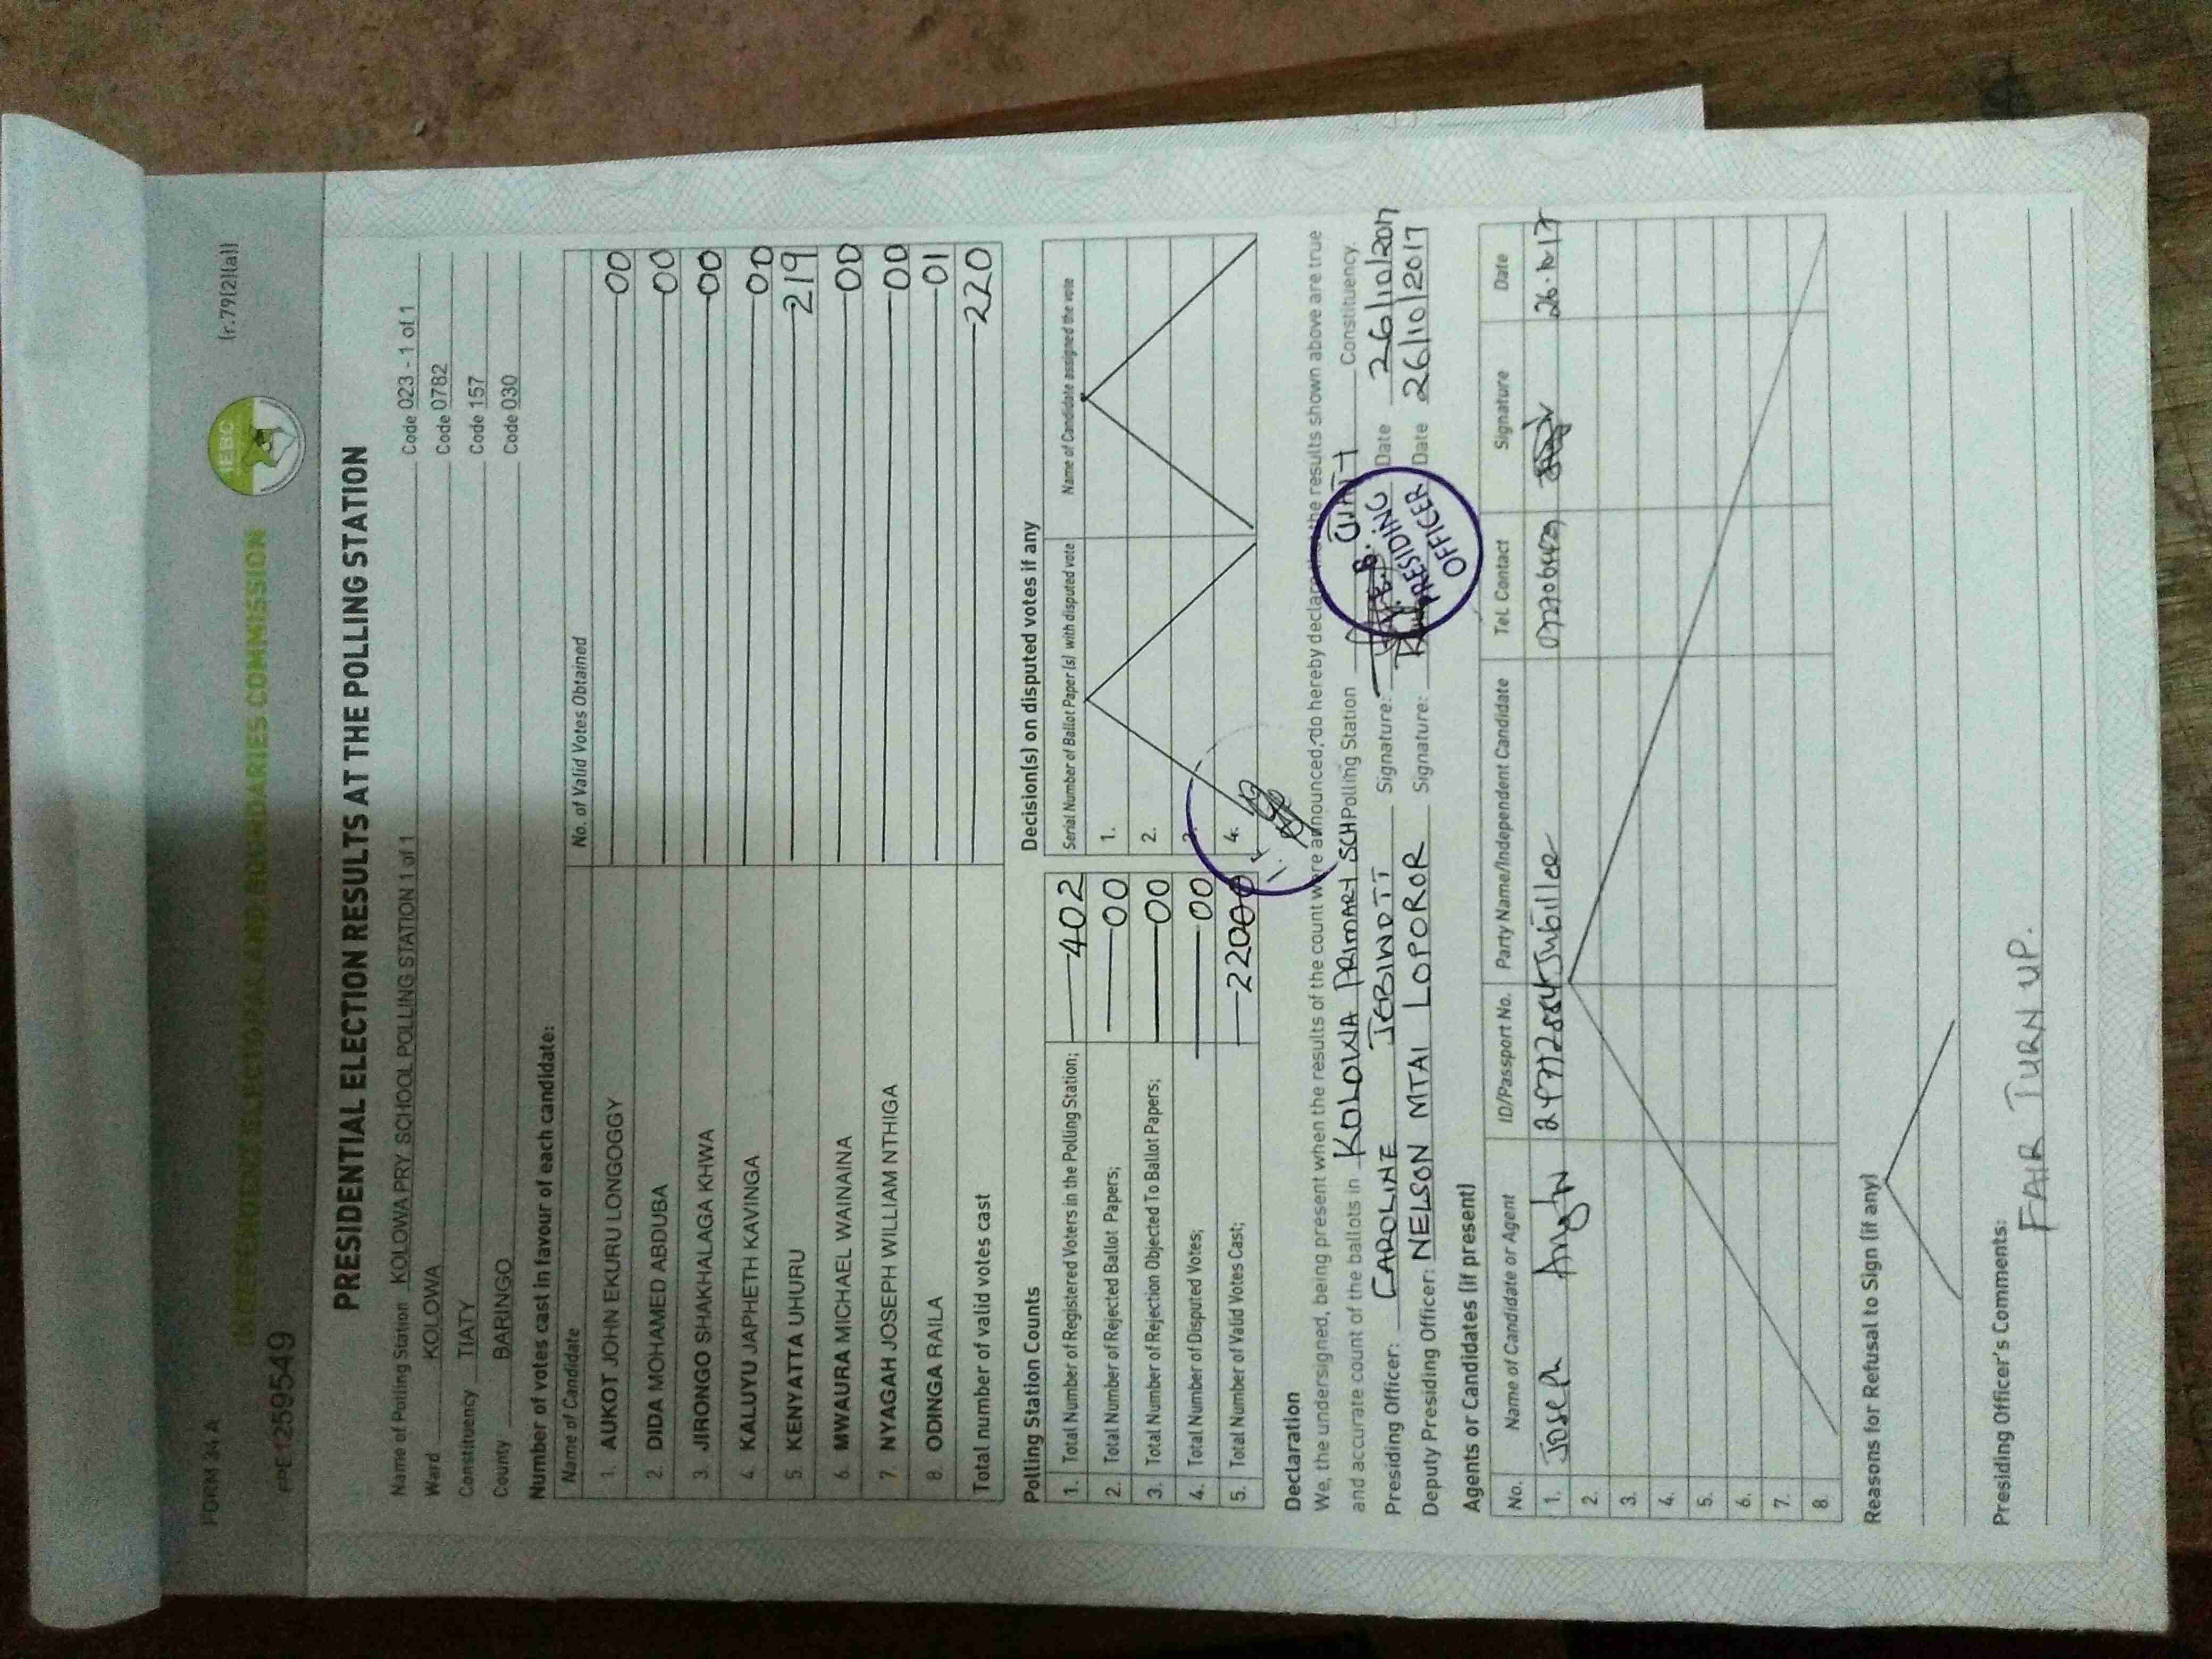 FORM 34 A
INDEPENDENT ELECTORAL AND BOUNDARIES COMMISSION
IEBC
(r.79(2)(a))
PRE1259549
PRESIDENTIAL ELECTION RESULTS AT THE POLLING STATION
Name of Polling Station KOLOWA PRY SCHOOL POLLING STATION 1 of 1 Code 023 - 1 of 1
Ward KOLOWA Code 0782
Constituency TIATY Code 157
County BARINGO Code 030
Number of votes cast in favour of each candidate:
Name of Candidate No. of Valid Votes Obtained
1. AUKOT JOHN EKURU LONGOGGY 00
2. DIDA MOHAMED ABDUBA 00
3. JIRONGO SHAKHALAGA KHWA 00
4. KALUYU JAPHETH KAVINGA 00
5. KENYATTA UHURU 219
6. MWAURA MICHAEL WAINAINA 00
7. NYAGAH JOSEPH WILLIAM NTHIGA 00
8. ODINGA RAILA 01
Total number of valid votes cast 220
Polling Station Counts
1. Total Number of Registered Voters in the Polling Station; 402
2. Total Number of Rejected Ballot Papers; 00
3. Total Number of Rejection Objected To Ballot Papers; 00
4. Total Number of Disputed Votes; 00
5. Total Number of Valid Votes Cast; 220
Decision(s) on disputed votes if any
Serial Number of Ballot Paper (s) with disputed vote Name of Candidate assigned the vote
1.
2.
3.
4.
Declaration
We, the undersigned, being present when the results of the count were announced, do hereby declare the results shown above are true
and accurate count of the ballots in KOLOWA PRIMARY SCH Polling Station Constituency.
Presiding Officer: CAROLINE JEBIWOTT Signature: Date 26/10/2017
Deputy Presiding Officer: NELSON MTAI LOPOROR Signature: Date 26/10/2017
PRESIDING
OFFICER
Agents or Candidates (if present)
No. Name of Candidate or Agent ID/Passport No. Party Name/Independent Candidate Tel. Contact Signature Date
1. Joseph Jubillee 26.10.17
2.
3.
4.
5.
6.
7.
8.
Reasons for Refusal to Sign (if any)
Presiding Officer's Comments:
FAIR TURN UP.